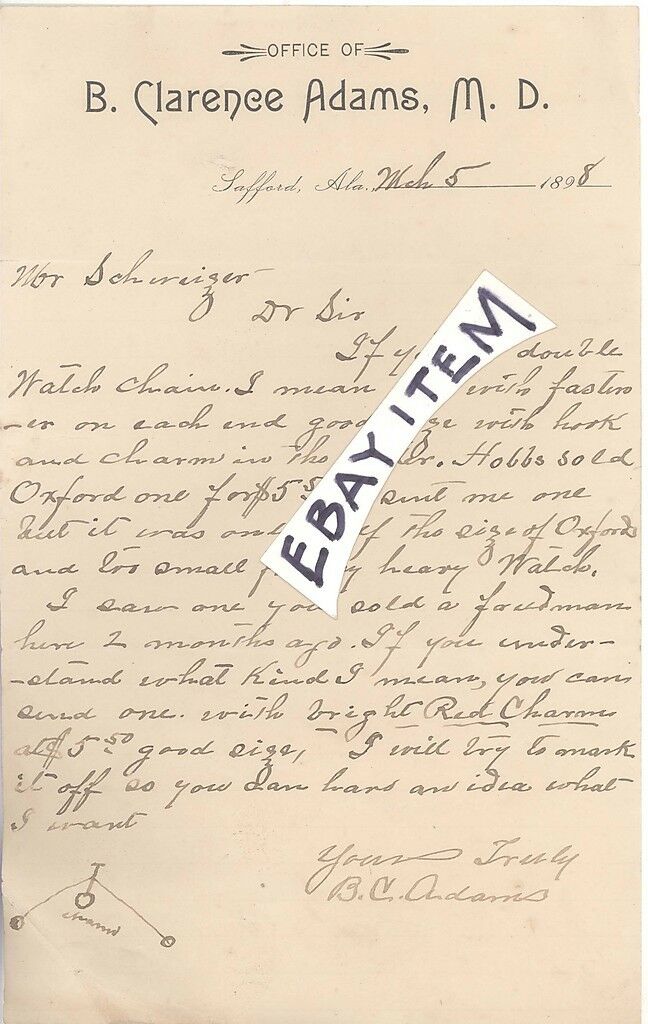 OFFICE OF
B. Clarence Adams, M. D.
Safford, Ala. Mch 5 1898
Mr Schweizer
Dr Sir
If y double
Watch chain. I mean with fasten
-er on each end good size with hook
and charm in the Hobbs sold
Oxford one for $5 sent me one
but it was one the size of Oxfords
and too small heavy Watch.
I saw one you sold a freedman
here 2 months ago. If you under-
-stand what Kind I mean, you can
send one. with bright Red Charm
at $5 50 good size, I will try to mark
it off so you can have an idea what
I want
Yours Truly
B. C. Adams
charm
EBAY ITEM